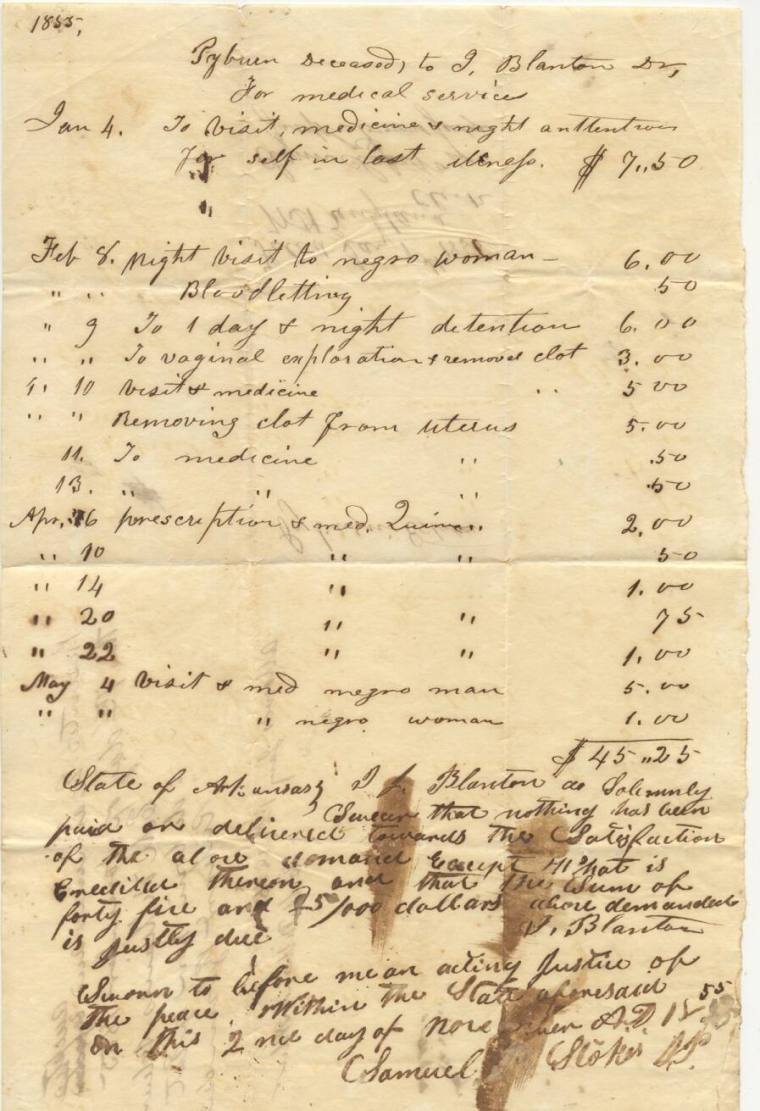 1855,
Pyburn Deceased, to J, Blanton Dr,
For medical service
Jan 4. To Visit, medicine & night anttention
for self in last illness. $ 7,,50
"
Feb 8. night visit to negro woman – 6.00
" " Bloodletting 50
" 9 To 1 day & night detention 6.00
" " To vaginal exploration & removed clot 3.00
" 10 Visit & medicine " 5 00
" " Removing clot from uterus 5.00
11. To medicine " .50
13. " " " .50
Apr, 6 prescription & med. Quinine " 2,00
" 10 " " 50
" 14 " 1.00
" 20 " " 75
" 22 " " 1.00
May 4 Visit & med negro man 5.00
" " " negro woman 1.00
$ 45,,25
State of Arkansas } I J. Blanton do Solemnly
Swear that nothing has been
paid or delivered towards the Satisfaction
of the above demand Except What is
Credited thereon and that the Sum of
forty five and 25/000 dollars above demanded
is justly due J. Blanton
Sworn to before me an acting Justice of
the peace Within the State aforesaid
on this 2nd day of November A.D 1855
Samuel Stokes JP.